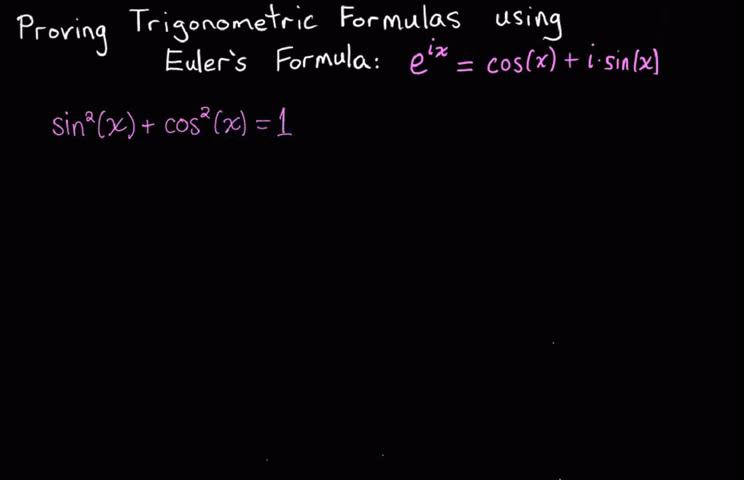 Proving Trigonometric Formulas using
Euler's Formula: e^{ix} = cos(x) + i·sin(x)
sin²(x) + cos²(x) = 1